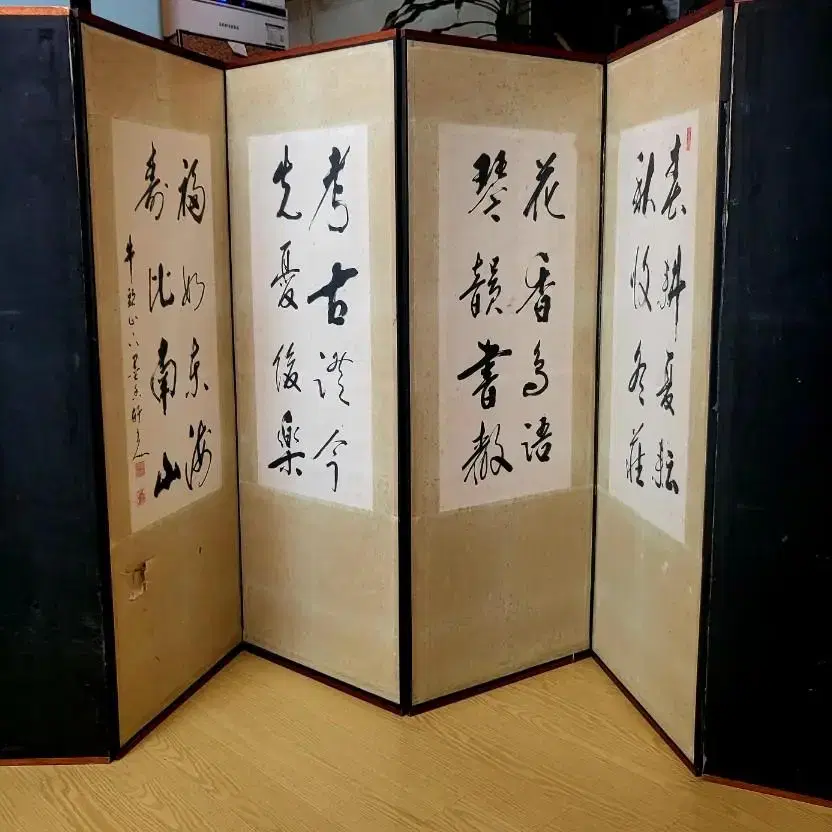 SAMSUNG
春耕夏耘
秋收冬藏
花香鳥語
琴韻書聲
考古證今
先憂後樂
福如東海
壽比南山